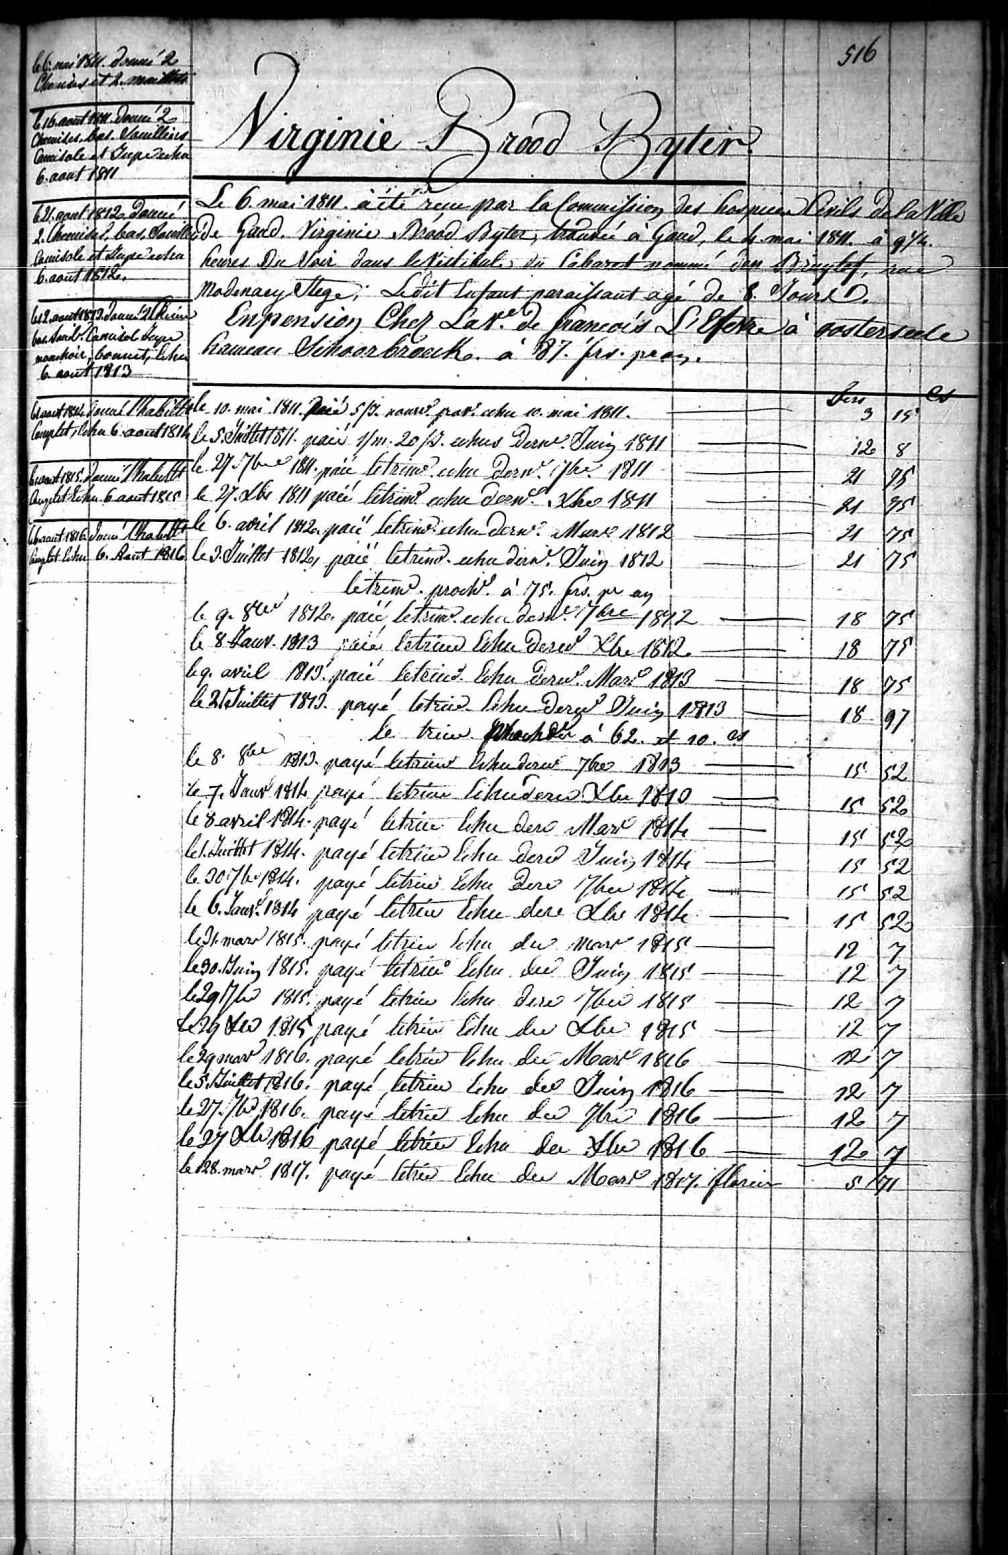 516
le 6. mai 1811. donné 2
Chemises et 2. maillots
le 16. aout 1811. Donné 2
Chemises, bas, Souilliers
Camisole et Jupe echu
6. aout 1811
le 21. aout 1812. Donné
2. Chemises, bas, Souilliers
Camisole et Jupe echu
6. aout 1812.
le 12. aout 1813. Donné 2 Chemi
bas Soul. Camisol Jupe
mouchoir, bonnet, Echu
6. aout 1813
aout 1814 Donné l'habillt
Complet, Echu 6. aout 1814
aout 1815. Donné l'habillt
Complet Echu 6. aout 1815
aout 1816. Donné l'habillt
Complet Echu 6. Aout 1816
Virginie Brood Byter.
Le 6. mai 1811. à été recu par la Commission des hospices Civils de la Ville
de Gand. Virginie Brood Byter, trouvée à Gand, le 4. mai 1811. à 9 1/2.
heures Du Soir dans le Vestibul, du Cabaret nommé den Bruylof, rue
Stege; Ledit Enfant paraissant agé de 8. Jours.
En pension Chez La Ve. de francois L'Efevre à oosterseele
hameau Schoorbrouck. à 87. frs. pr an.
frs Cs
le 10. mai 1811. paié 5/J. nourre. prov. echu 10. mai 1811. 3 15
le 5. Juillet 1811. paié 1/m. 20/J. echus Derne. Juin 1811 12 8
le 27. 7bre 1811. paié le trime. echu Dern. 7bre 1811 21 75
le 27. Xbre 1811 paié le trime. echu dern. Xbre 1811 21 75
le 6. avril 1812. paié le trime. echu dern. Mars 1812 21 75
le 3. Juillet 1812, paié le trime. echu dern. Juin 1812 21 75
le trim. proch. à 75. frs. pr an
le 9. 8bre 1812. paié le trim. echu dern. 7bre 1812 18 75
le 8 Janv. 1813 paié le trim Echu Dern Xbre 1812 18 75
le 9. avril 1813. paié le trim. Echu Dern. Mars 1813 18 75
le 21 Juillet 1813. payé le trim Echu Dern Juin 1813 18 97
le trim prochain à 62. et 10. cs
le 8. 8bre 1813. payé le trim Echu dern 7bre 1813 15 52
le 7. Janv 1814 payé le trim Echu dern Xbre 1810 15 52
le 8 avril 1814. payé le trim Echu der Mars 1814 15 52
le 1. Juillet 1814. payé le trim Echu dern Juin 1814 15 52
le 30. 7bre 1814. payé le trim Echu Der 7bre 1814 15 52
le 6. Janv. 1814 payé le trim Echu der Xbre 1814 15 52
le 31. mars 1815. payé le trim Echu der mars 1815 12 7
le 30. Juin 1815. payé le trim Echu der Juin 1815 12 7
le 29 7bre 1815. payé le trim Echu der 7bre 1815 12 7
le 29 Xbre 1815 payé le trim Echu der Xbre 1815 12 7
le 29 mars 1816. payé le trim Echu der Mars 1816 12 7
le 5. Juillet 1816. payé le trim Echu der Juin 1816 12 7
le 27. 7bre 1816. payé le trim Echu der 7bre 1816 12 7
le 27 Xbre 1816 payé le trim Echu der Xbre 1816 12 7
le 28. mars 1817. payé le trim Echu der Mars 1817. florin 5 71